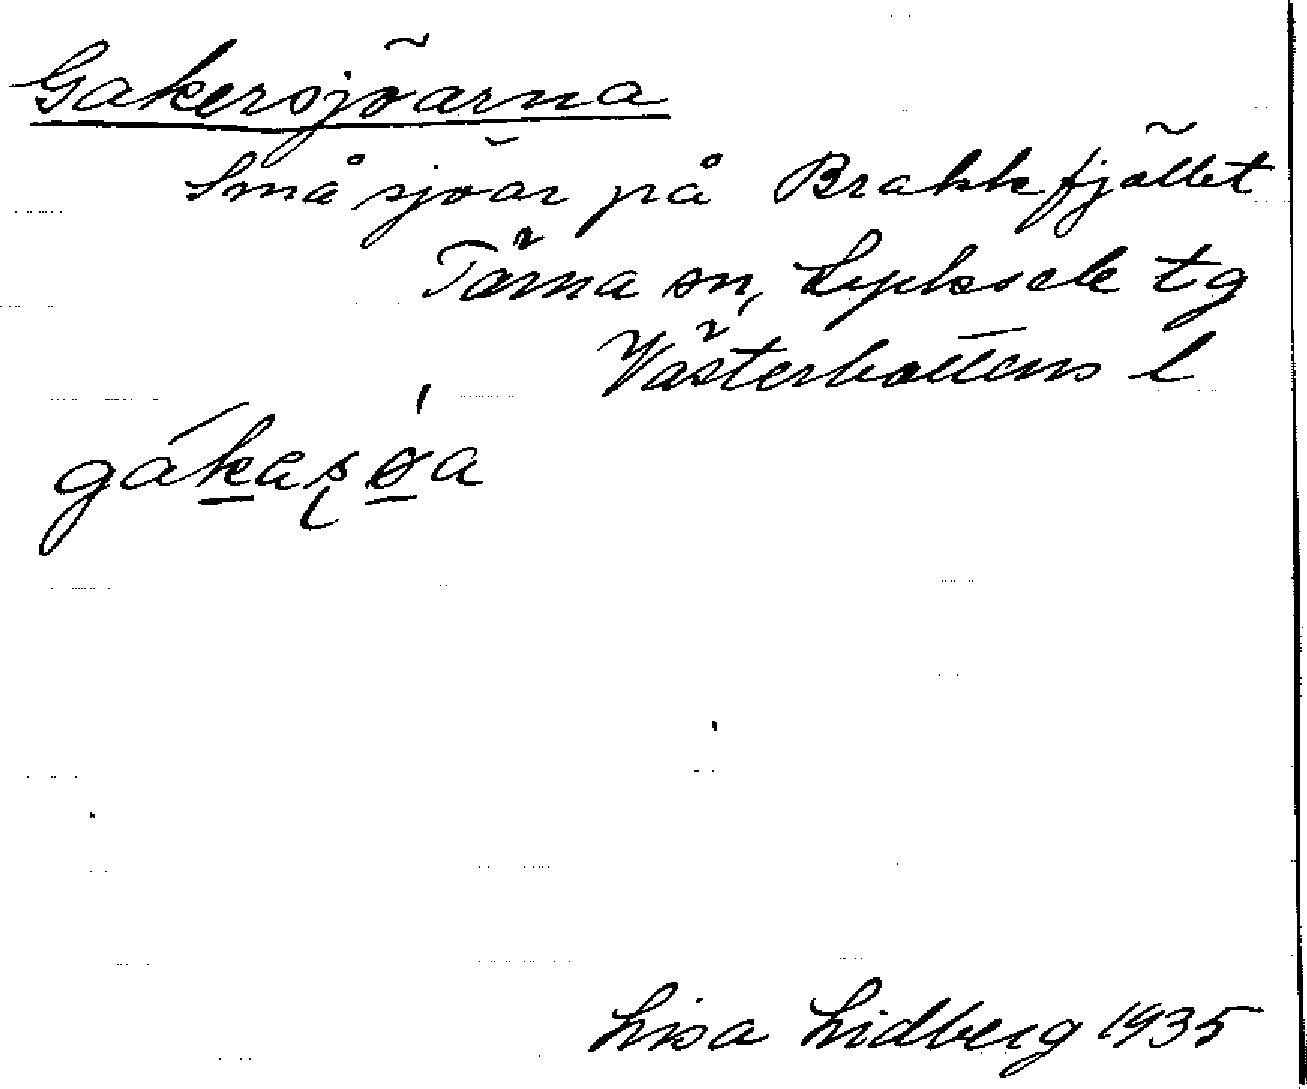 Gakersjöarna
Små sjöar på Brakkfjället
Tärna sn, Lycksele tg
Västerbottens l
gákaşøa
Lisa Lidberg 1935